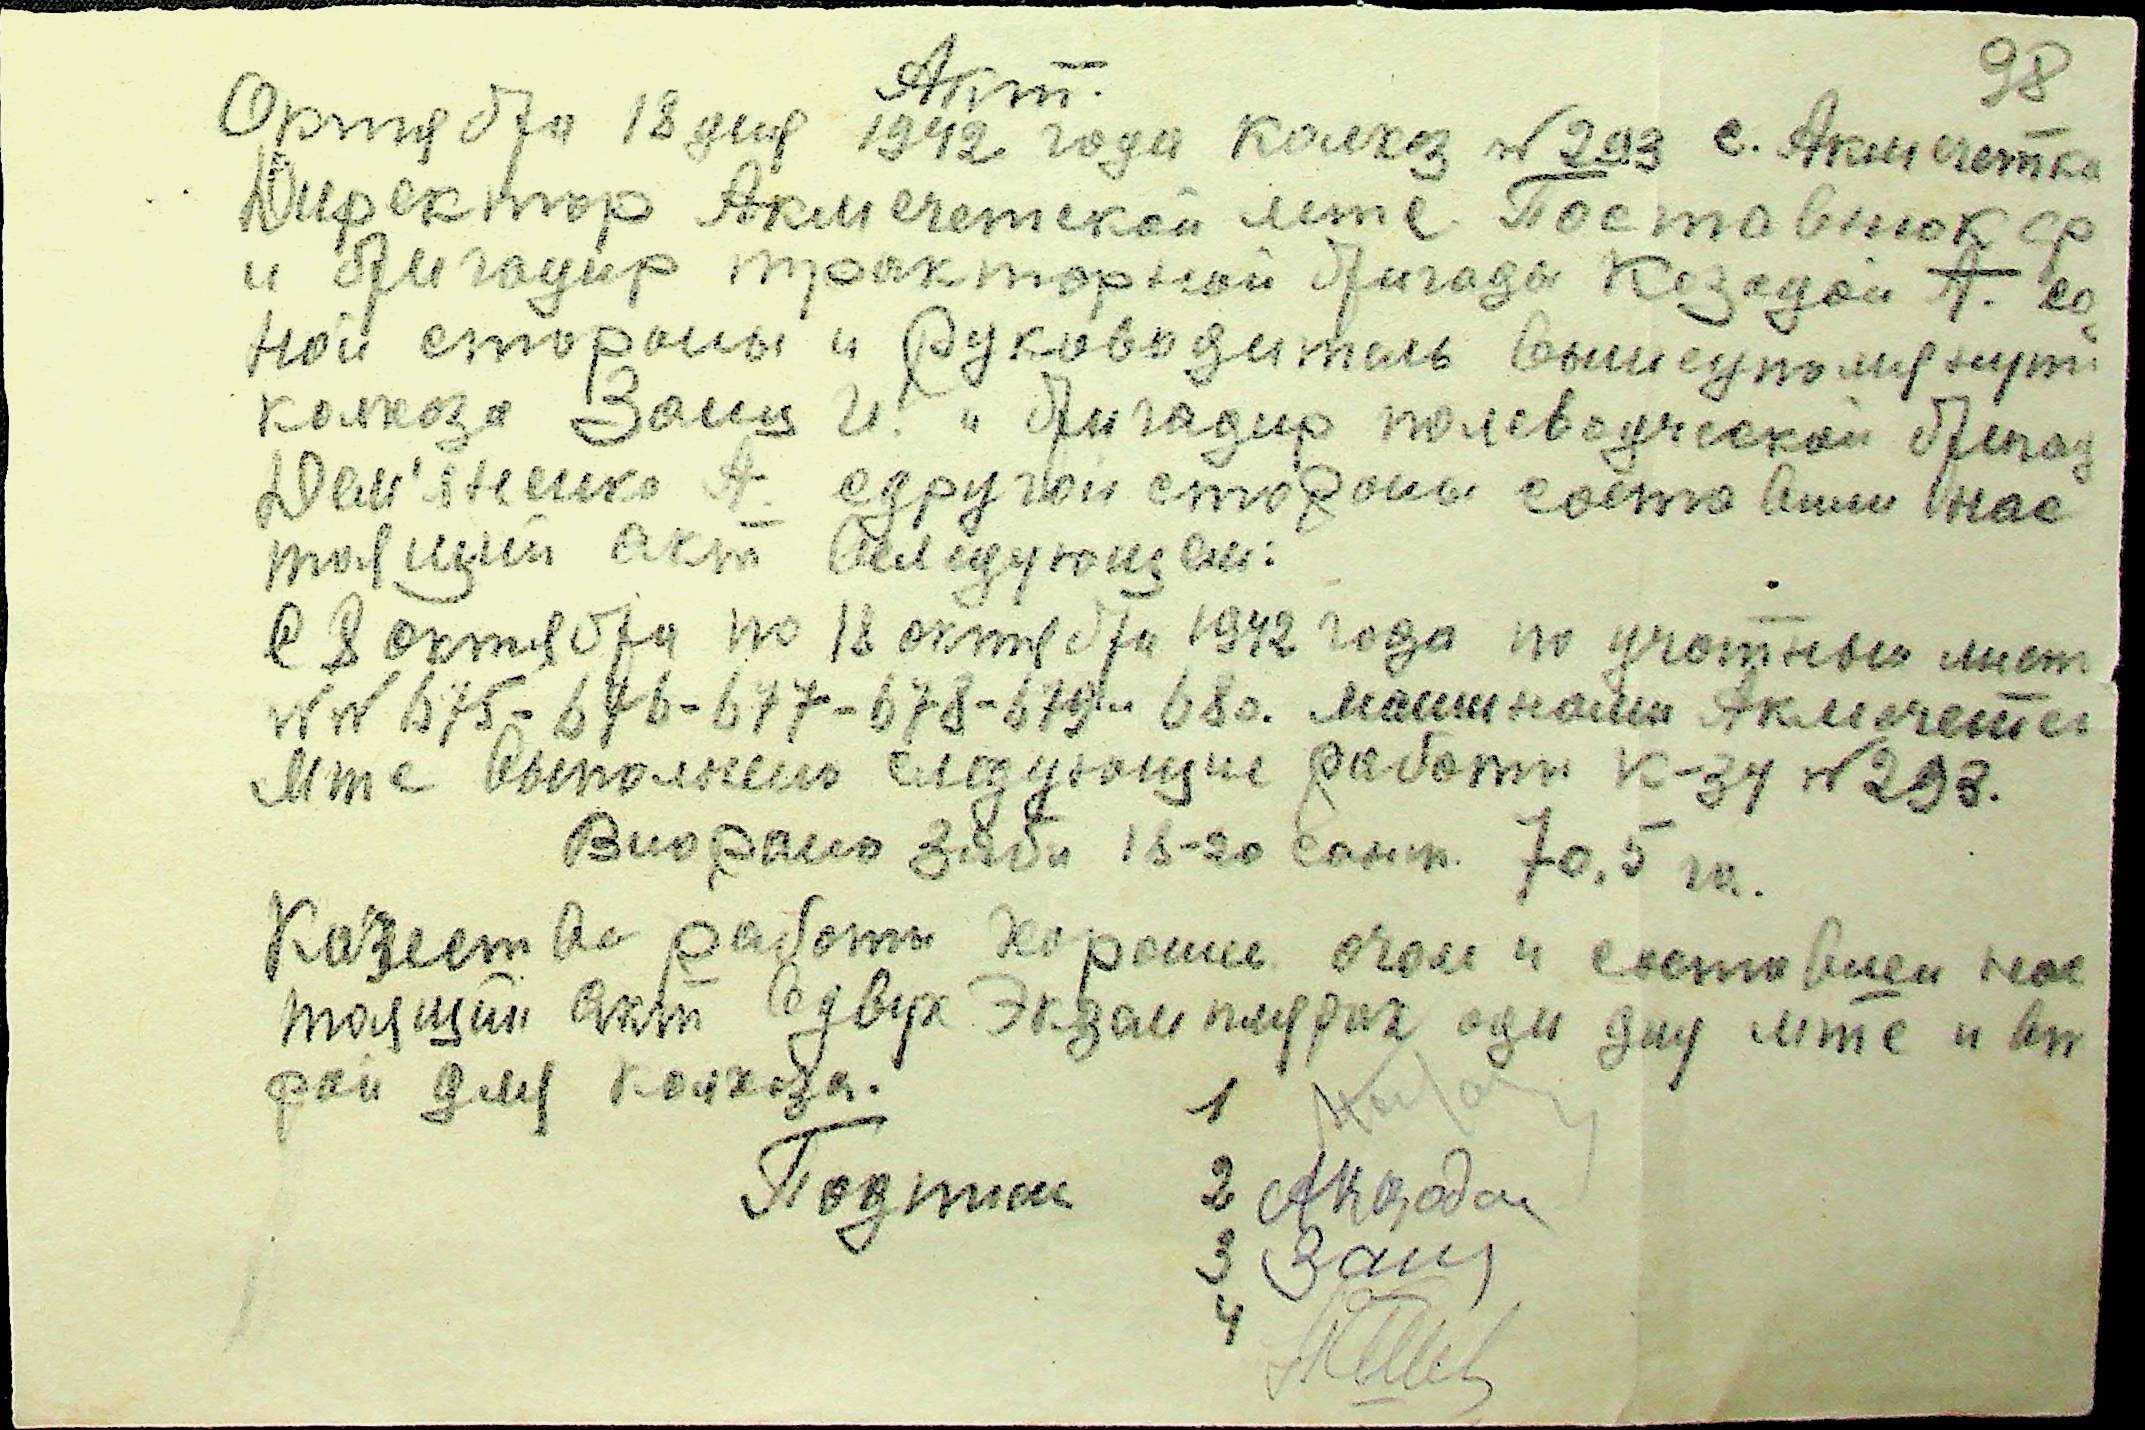 98
Акт.
Октября 18 дня 1942 года колхоз № 293 с. Акмечетка
Директор Акмечетской мтс Поставнюк ср
и бригадир тракторной бригады Кезедой А. со
ной стороны и Руководитель вышеупомянут
колхоза Заиц И. и бригадир полеводческой бригад
Дем'яненко А. сдругой стороны составили нас
тоящий акт вследующем:
С 8 октября по 18 октября 1942 года по учотным лист
№№ 675-676-677-678-679-680. машинами Акмечетс
Мтс выполнено следующие работы к-зу № 293.
Виорано зяби 18-20 сант. 70,5 га.
Качество работы хорошее очом и составлен нас
тоящий акт вдвух Экзамплярах оди дну мтс и вт
рой для колхоза.
Подписи
1
2
3 Заиц
4